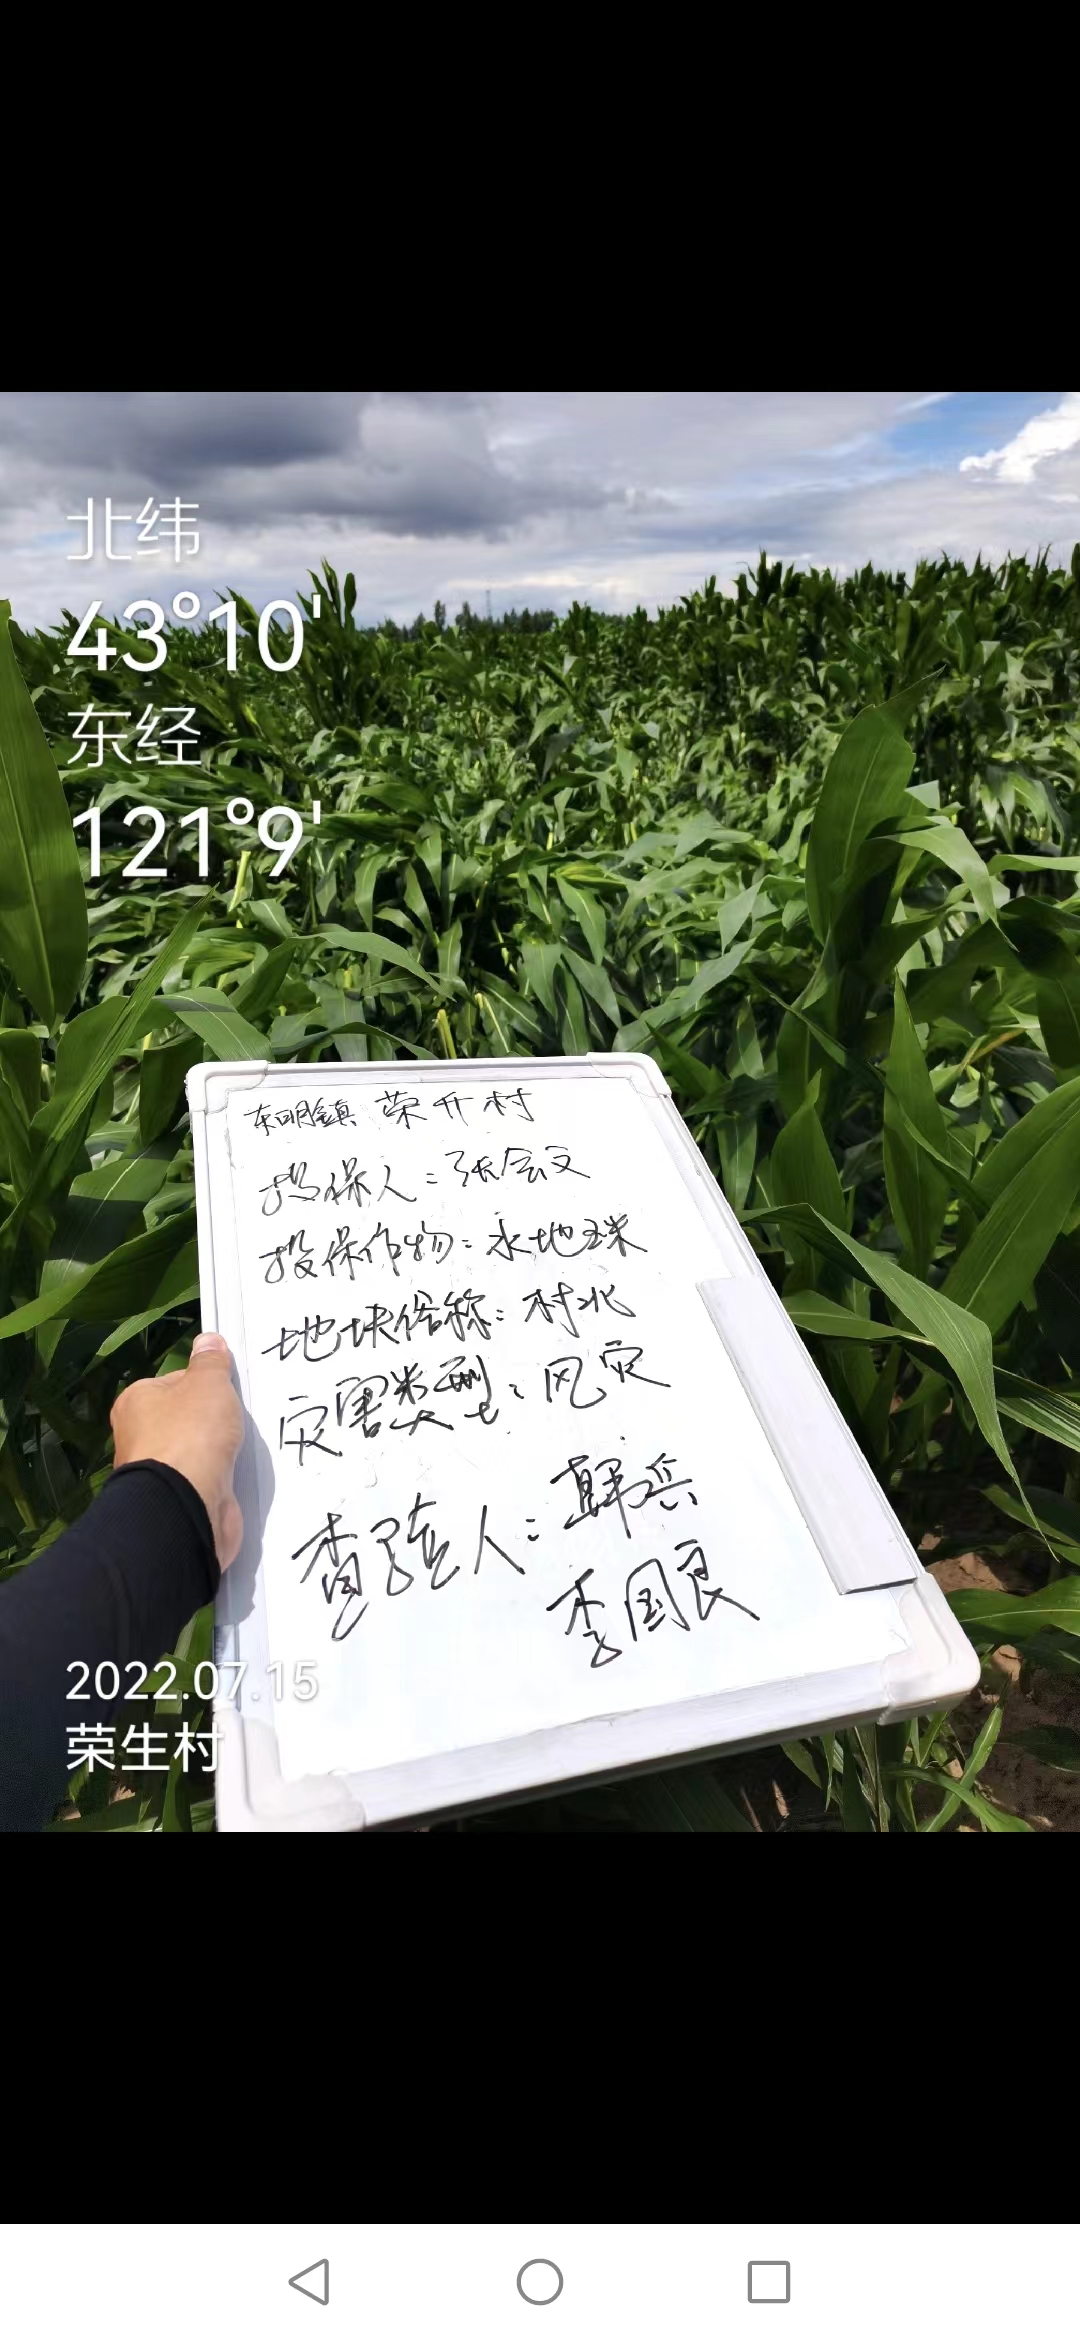 北纬
43°10'
东经
121°9'
东明鎮 荣升村
投保人：张会文
投保作物：水地玉米
地块俗称：村北
灾害类型：风灾
查验人：韩兵
李国良
2022.07.15
荣生村